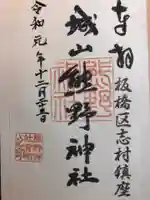 奉拝
板橋区志村鎮座
城山熊野神社
令和元年十二月吉日